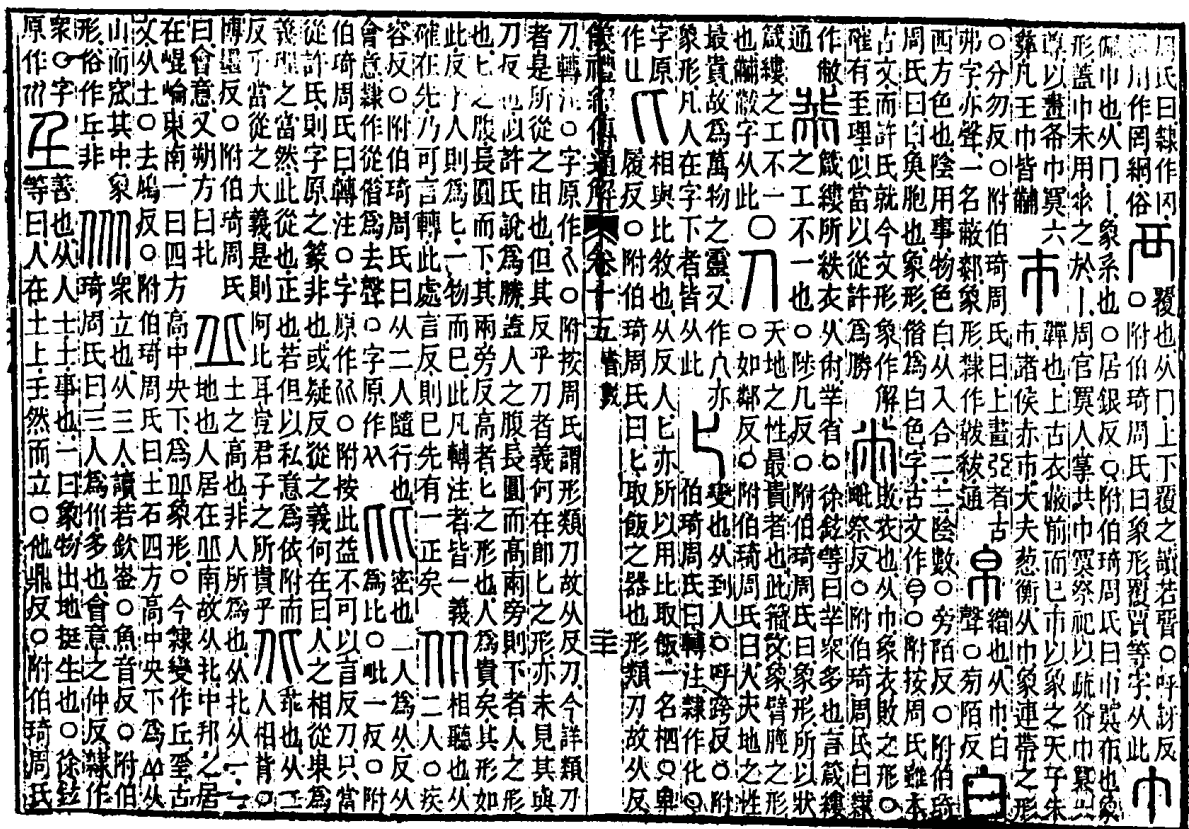 周氏曰隸作冈
周作罔綱俗
襾
覆也从冂上下覆之讀若晋○呼訝反
○附伯琦周氏曰象形覆賈等字从此
巾
佩巾也从冂丨象系也○居銀反○附伯琦周氏曰巾冪布也象
形蓋巾未用之於丨周官冪人掌共巾冪祭祀以疏各巾冪六
尊以畫各巾冪六
彝凡王巾皆黼
市
韠也上古衣蔽前而已市以象之天子朱
市諸侯赤市大夫葱衡从巾象連帶之形
○分勿反○附伯琦周氏曰上畫亞者古
弗字亦聲一名蔽郄象形隸作韍紱通
帛
繒也从巾白
聲○旁陌反
白
西方色也陰用事物色白从入合二二陰數○旁陌反○附伯琦
周氏曰白奐胞也象形借爲白色字古文作○附按周氏雖本
古文而許氏就今文形象作解
確有至理似當以從許爲勝
㡀
敗衣也从巾象衣敗之形○
毗祭反○附伯琦周氏曰隸
作敝
通
黹
箴縷所紩衣从㡀丵省○徐鉉等曰丵衆多也言箴縷
之工不一也○陟几反○附伯琦周氏曰象形所以狀
箴縷之工不一
也黼黻字从此
○人
天地之性最貴者也此籒文象臂脛之形
○如鄰反○附伯琦周氏曰人天地之性
最貴故爲萬物之靈又作亦
象形凡人在字下者皆从此
𠤎
變也从到人○呼跨反○附
伯琦周氏曰轉注隸作化○臯
字原
作
匕
相與比敘也从反人匕亦所以用比取飯一名柶○卑
履反○附伯琦周氏曰匕取飯之器也形類刀故从反
儀禮經傳通解 卷十五 書數 三十
刀轉注○字原作○附按周氏謂形類刀故从反刀今詳類刀
者是所從之由也但其反乎刀者義何在即匕之形亦未見其與
刀反也以許氏說爲勝蓋人之腹長圓而高兩旁則下者人之形
也匕之腹長圓而下其兩旁反高者匕之形也人爲貴矣其形如
此反乎人則爲匕一物而已此凡轉注者皆一義
確在先乃可言轉此處言反則已先有一正矣
从
相聽也从
二人○疾
容反○附伯琦周氏曰从二人隨行也
會意隸作從借爲去聲○字原作
比
密也二人爲从反从
爲比○毗一反○附
伯琦周氏曰轉注○字原作○附按此益不可以言反刀只當
從許氏則字原之篆非也或疑反從之義何在曰人之相從果爲
義理之當然此從也正也若但以私意爲依附而
反乎當從之大義是則阿比耳豈君子之所貴乎
北
乖也从二
人相背○
博墨反○附伯琦周氏
曰會意又朔方曰北
丘
土之高也非人所爲也从北从一一
地也人居在丘南故从北中邦之居
在崐崘東南一曰四方高中央下爲丘象形○今隸變作丘坙古
文从土○去鳩反○附伯琦周氏曰土石四方高中央下爲丘从
山而窊其中象
形俗作丘非
㐺
衆立也从三人讀若欽崟○魚音反○附伯
琦周氏曰三人爲㐺多也會意之仲反隸作
衆○字
原作
𡈼
善也从人士士事也一曰象物出地挺生也○徐鉉
等曰人在土上𡈼然而立○他鼎反○附伯琦周氏